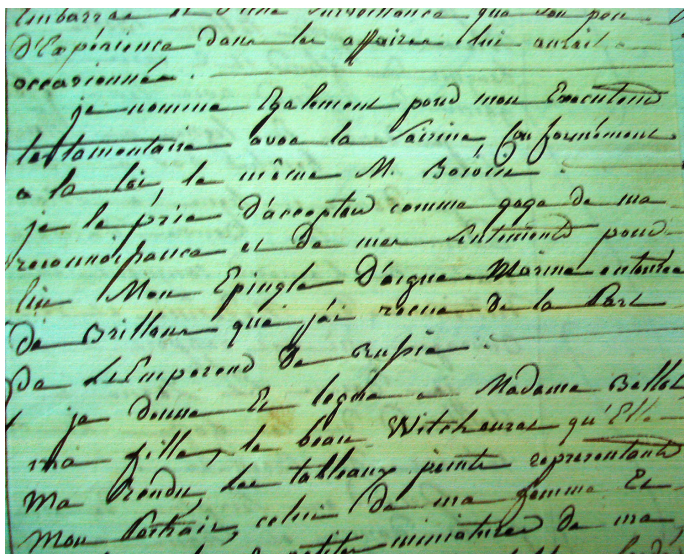 Embarras et d'une surveillance que son peu
d'Expérience dans les affaires lui aurait
occasionnée.
je nomme Egalement pour mon Executeur
testamentaire avec la saisine, Conformément
a la loi, le même M. Boivin.
je le prie d'accepter comme gage de ma
reconnaissance et de mes sentiments pour
lui Mon Epingle D'aigue Marine entourée
de Brillans que j'ai reçue de la Part
De L'Empereur De Russie.
je donne Et legue a Madame
ma fille, le beau qu'Elle
ma rendu, les tableaux peints representants
Mon Portrait, celui de ma femme Et
petites miniatures de ma